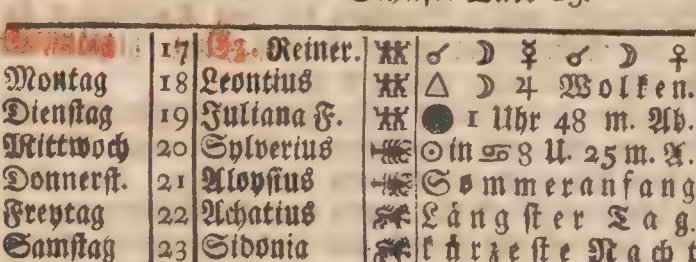 Sonntag 17 G4. Reiner. ☌ ☽ ☿ ☌ ☽ ♀
Montag 18 Leontius △ ☽ ♃ Wolken.
Dienſtag 19 Juliana F. ● 1 Uhr 48 m. Ab.
Mittwoch 20 Sylverius ☉ in ♋ 8 U. 25 m. A
Donnerſt. 21 Aloyſius Sommeranfang
Freytag 22 Achatius Längſter Tag.
Samſtag 23 Sidonia kürzeſte Nacht